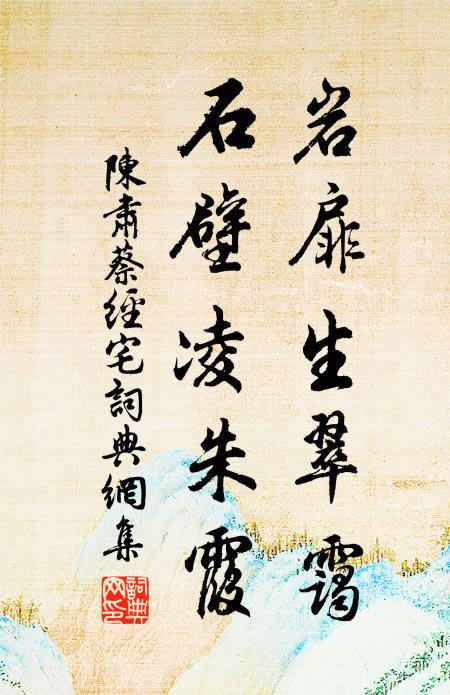 岩扉生翠靄
石壁凌朱霞
陳肅蔡經宅詞典網集
詞典網印